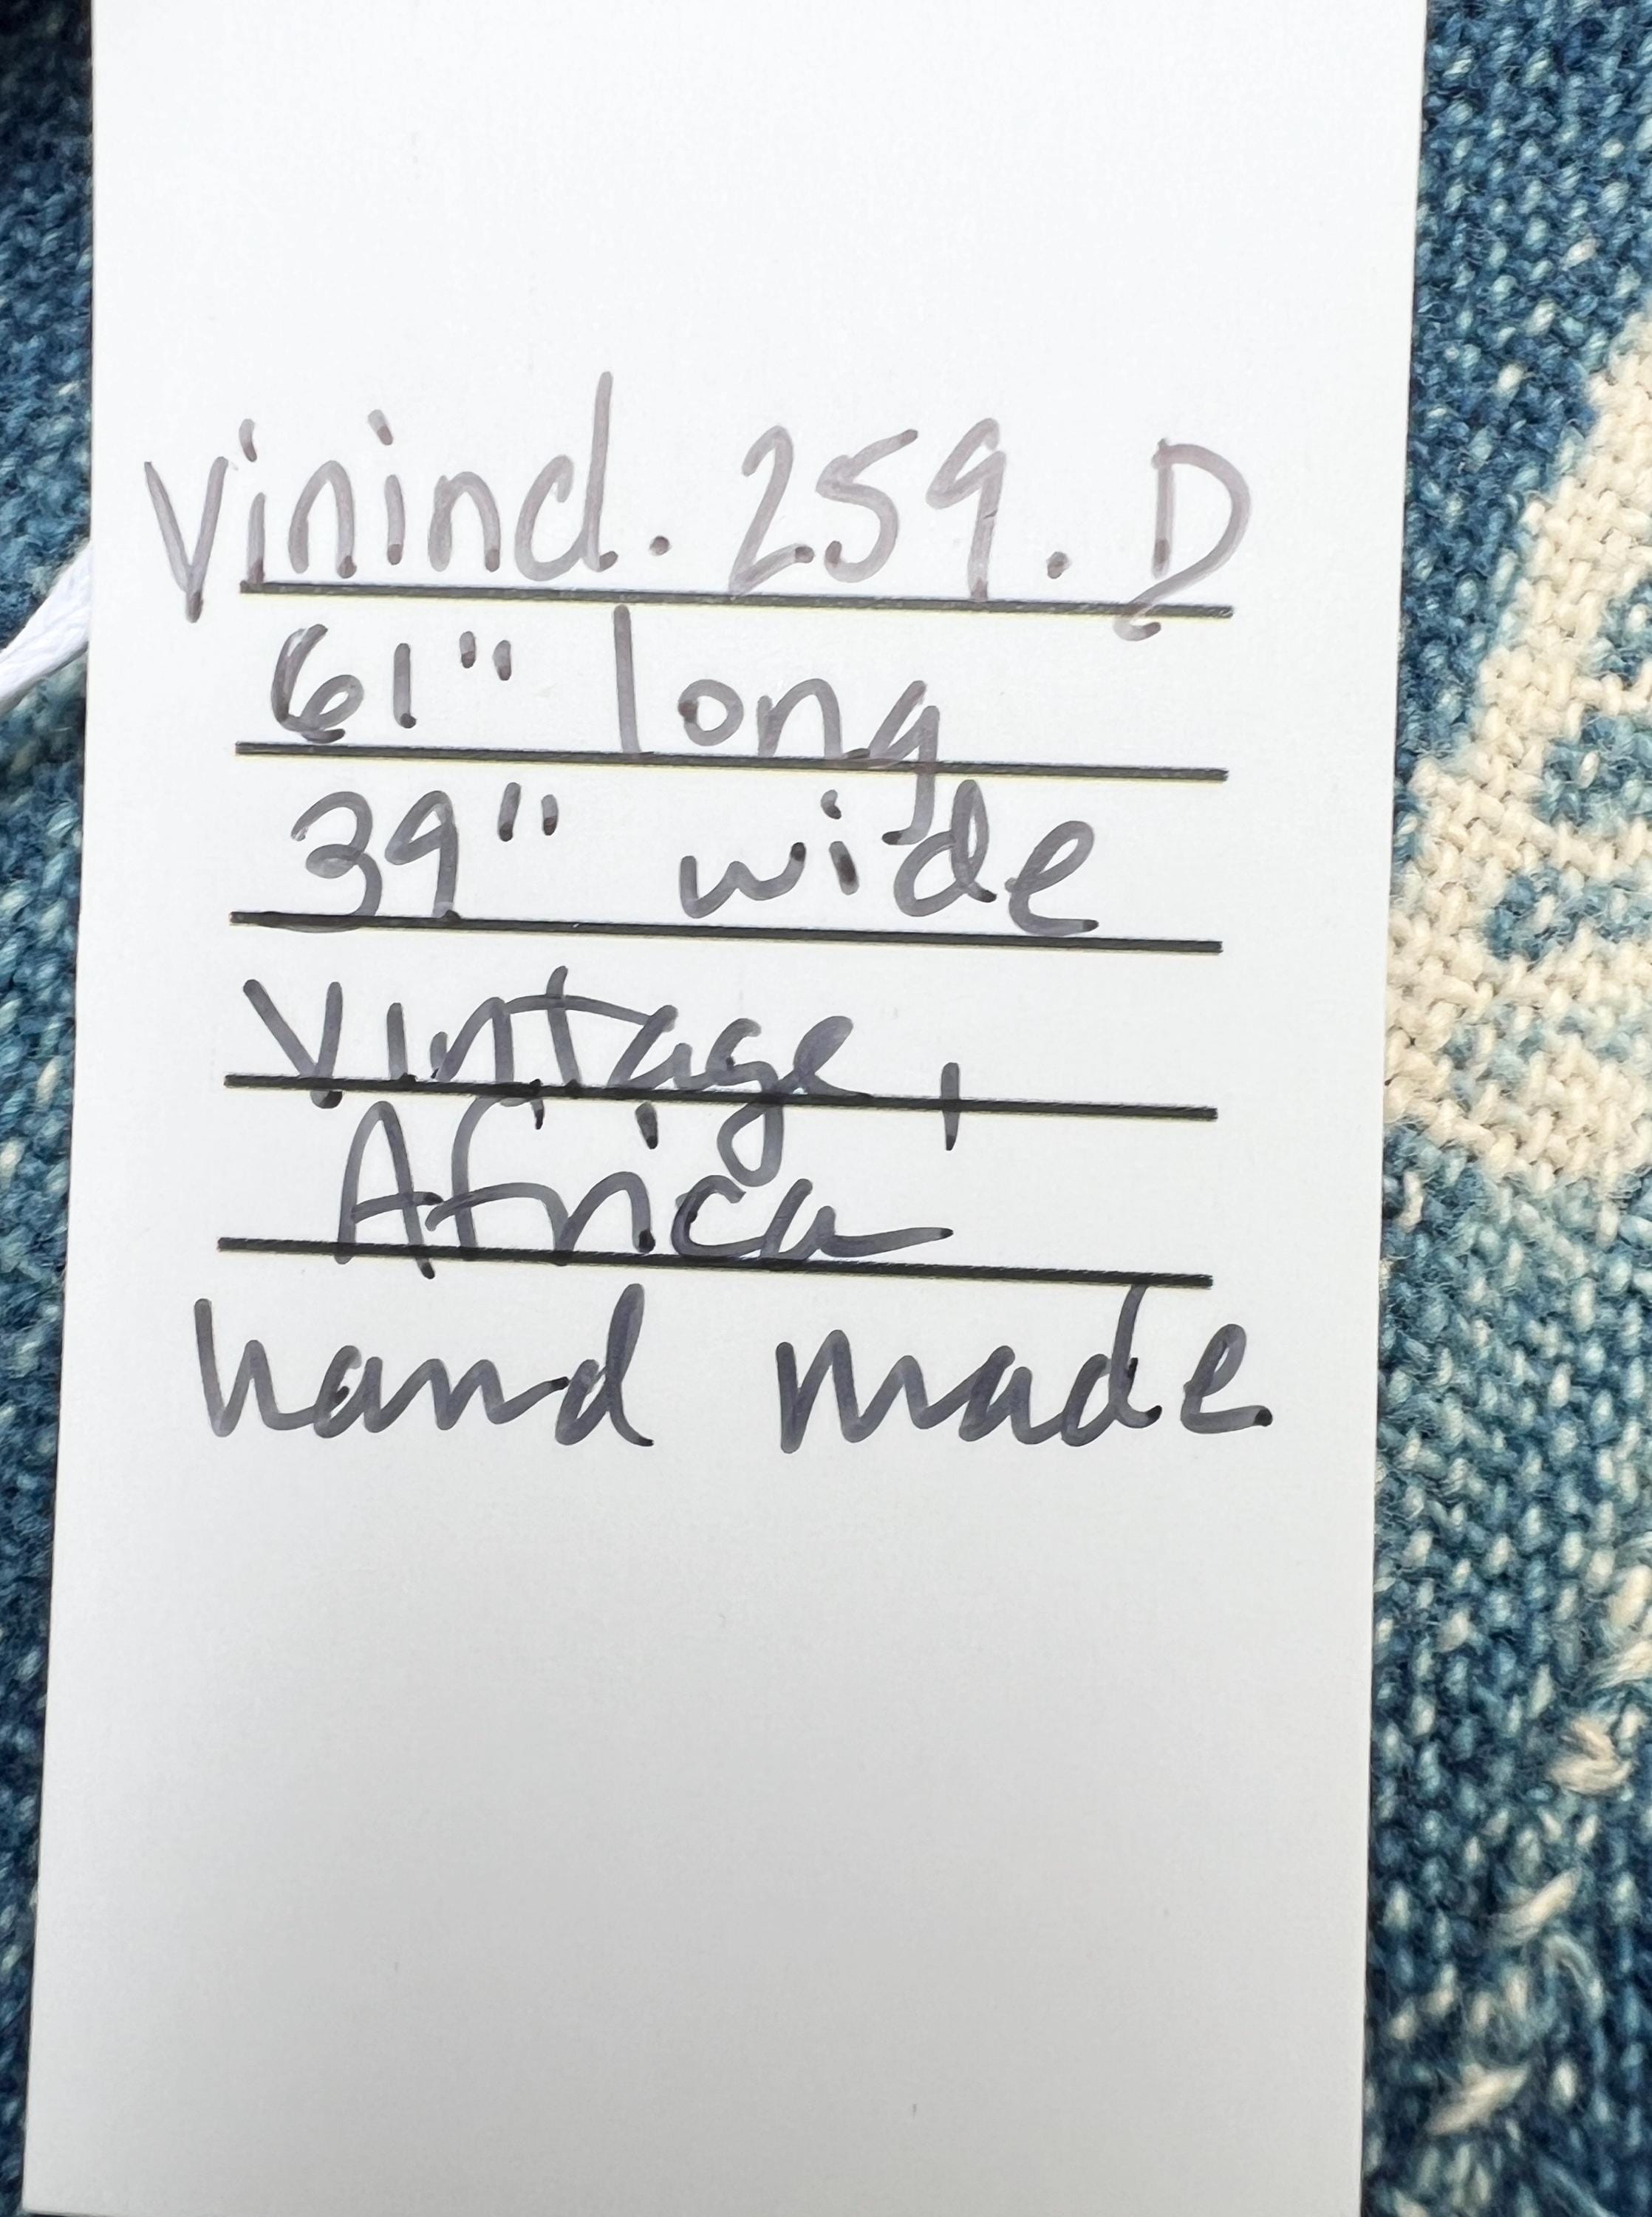 Vinind. 259. D
61" long
39" wide
Vintage,
Africa
hand made